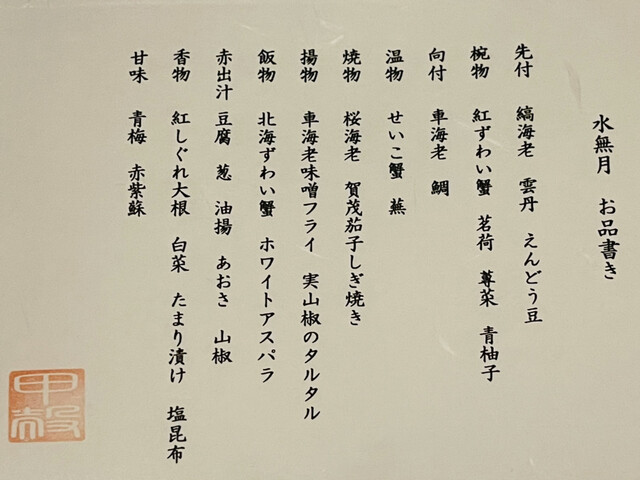 水無月　お品書き
先付　縞海老　雲丹　えんどう豆
椀物　紅ずわい蟹　茗荷　蓴菜　青柚子
向付　車海老　鯛
温物　せいこ蟹　蕪
焼物　桜海老　賀茂茄子しぎ焼き
揚物　車海老味噌フライ　実山椒のタルタル
飯物　北海ずわい蟹　ホワイトアスパラ
赤出汁　豆腐　葱　油揚　あおさ　山椒
香物　紅しぐれ大根　白菜　たまり漬け　塩昆布
甘味　青梅　赤紫蘇
甲殻